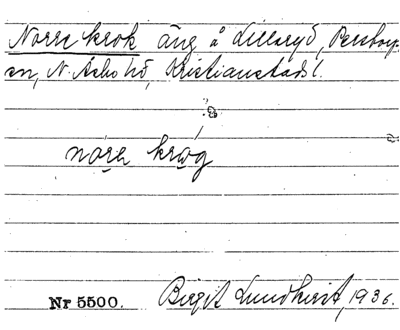 Norra krok äng å Lillaryd, Perstorps
sn, N. Åsbo hd, Kristianstads l.
nóra krog
Nr 5500. Birgit Lundkvist, 1936.